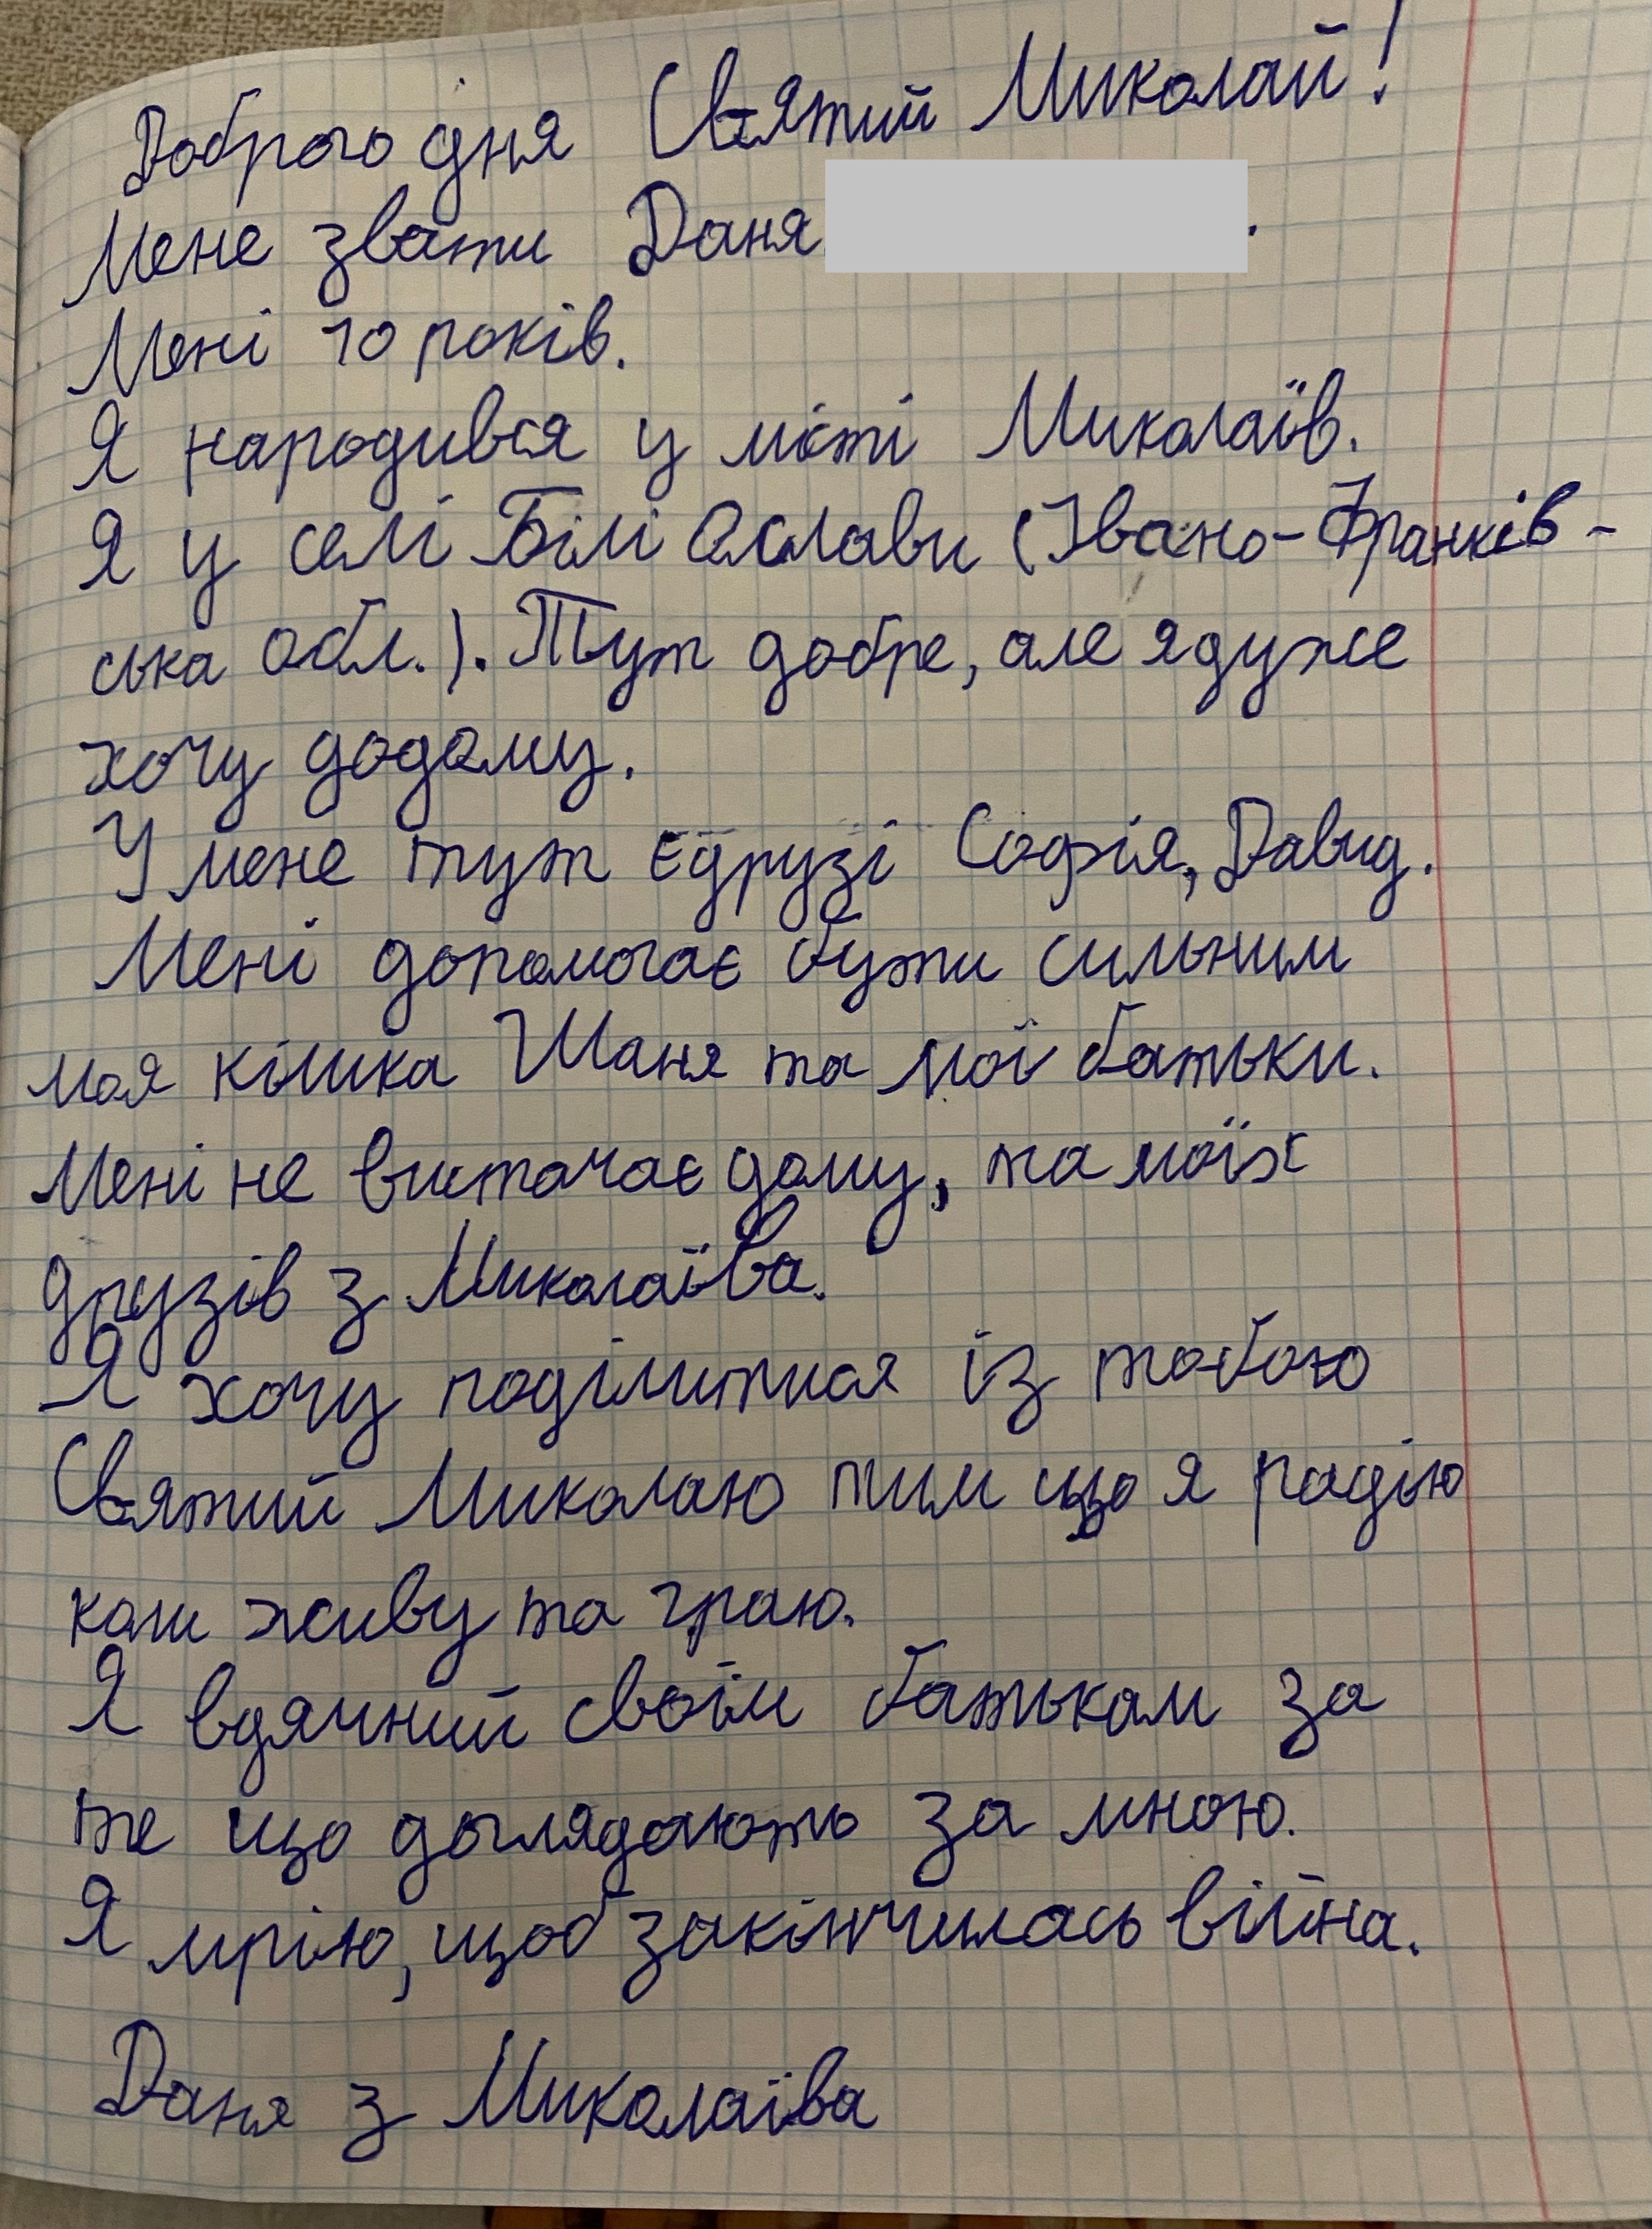 Доброго дня Святий Миколай!
Мене звати Даня .
Мені 10 років.
Я народився у місті Миколаїв.
Я у селі Білі Ослави (Івано-Франків-
ська обл.). Тут добре, але я дуже
хочу додому.
У мене тут є друзі Софія, Давид.
Мені допомагає бути сильним
моя кішка Шаня та мої батьки.
Мені не вистачає дому, та моїх
друзів з Миколаїва.
Я хочу поділитися із тобою
Святий Миколаю тим що я радію
коли живу та граю.
Я вдячний своїм батькам за
те що доглядають за мною.
Я мрію, щоб закінчилась війна.
Даня з Миколаїва